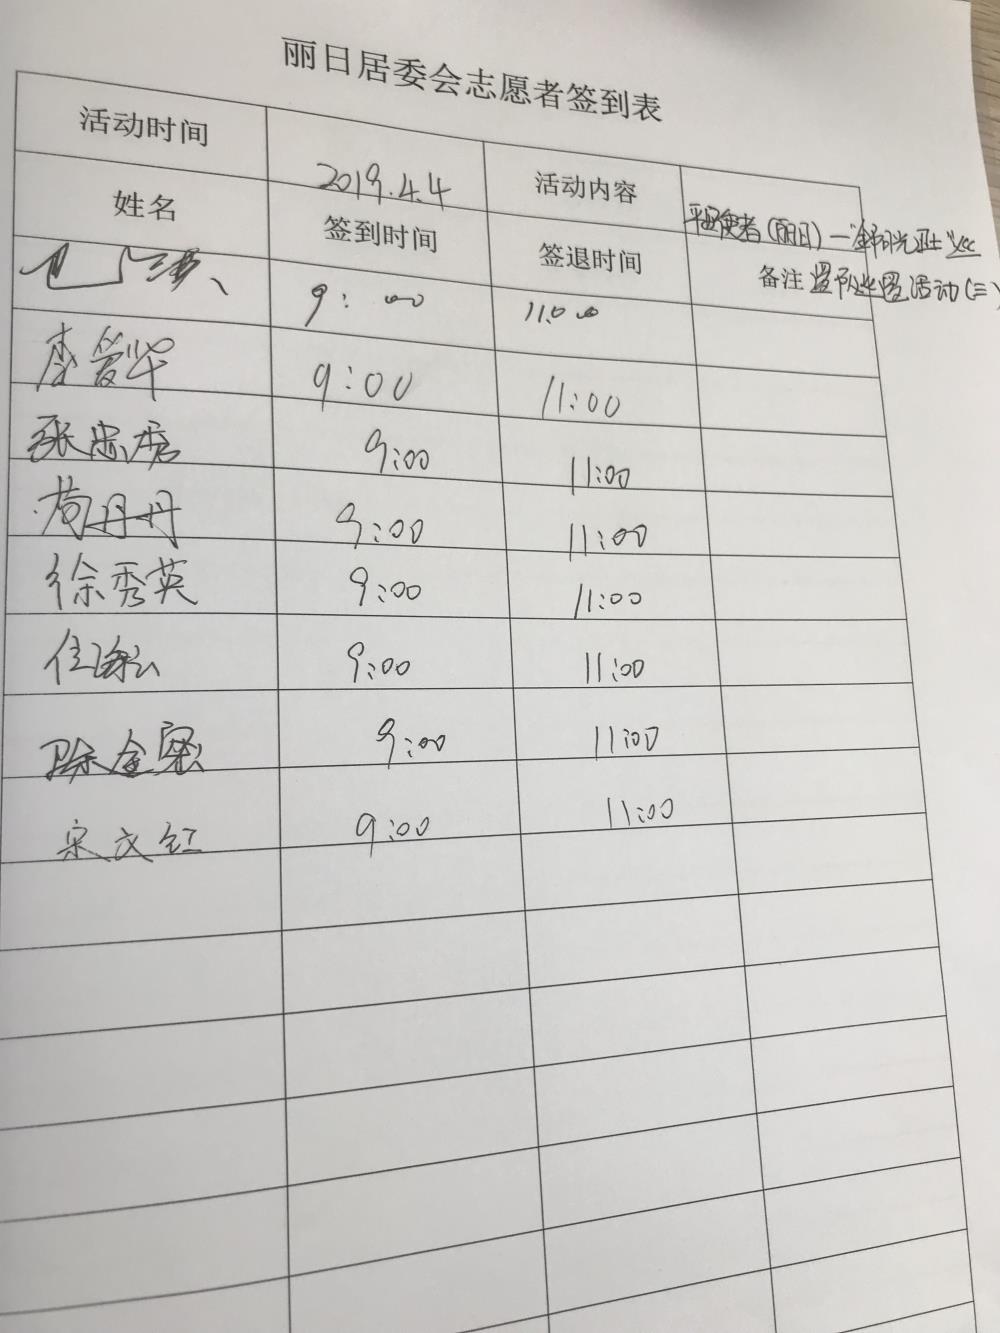 丽日居委会志愿者签到表
活动时间 2019.4.4 活动内容 使者(丽日)一
姓名 签到时间 签退时间 备注 活动(三)
9:00 11:00
李爱华 9:00 11:00
张忠 9:00 11:00
丹丹 9:00 11:00
徐秀英 9:00 11:00
9:00 11:00
陈金 9:00 11:00
宋文红 9:00 11:00